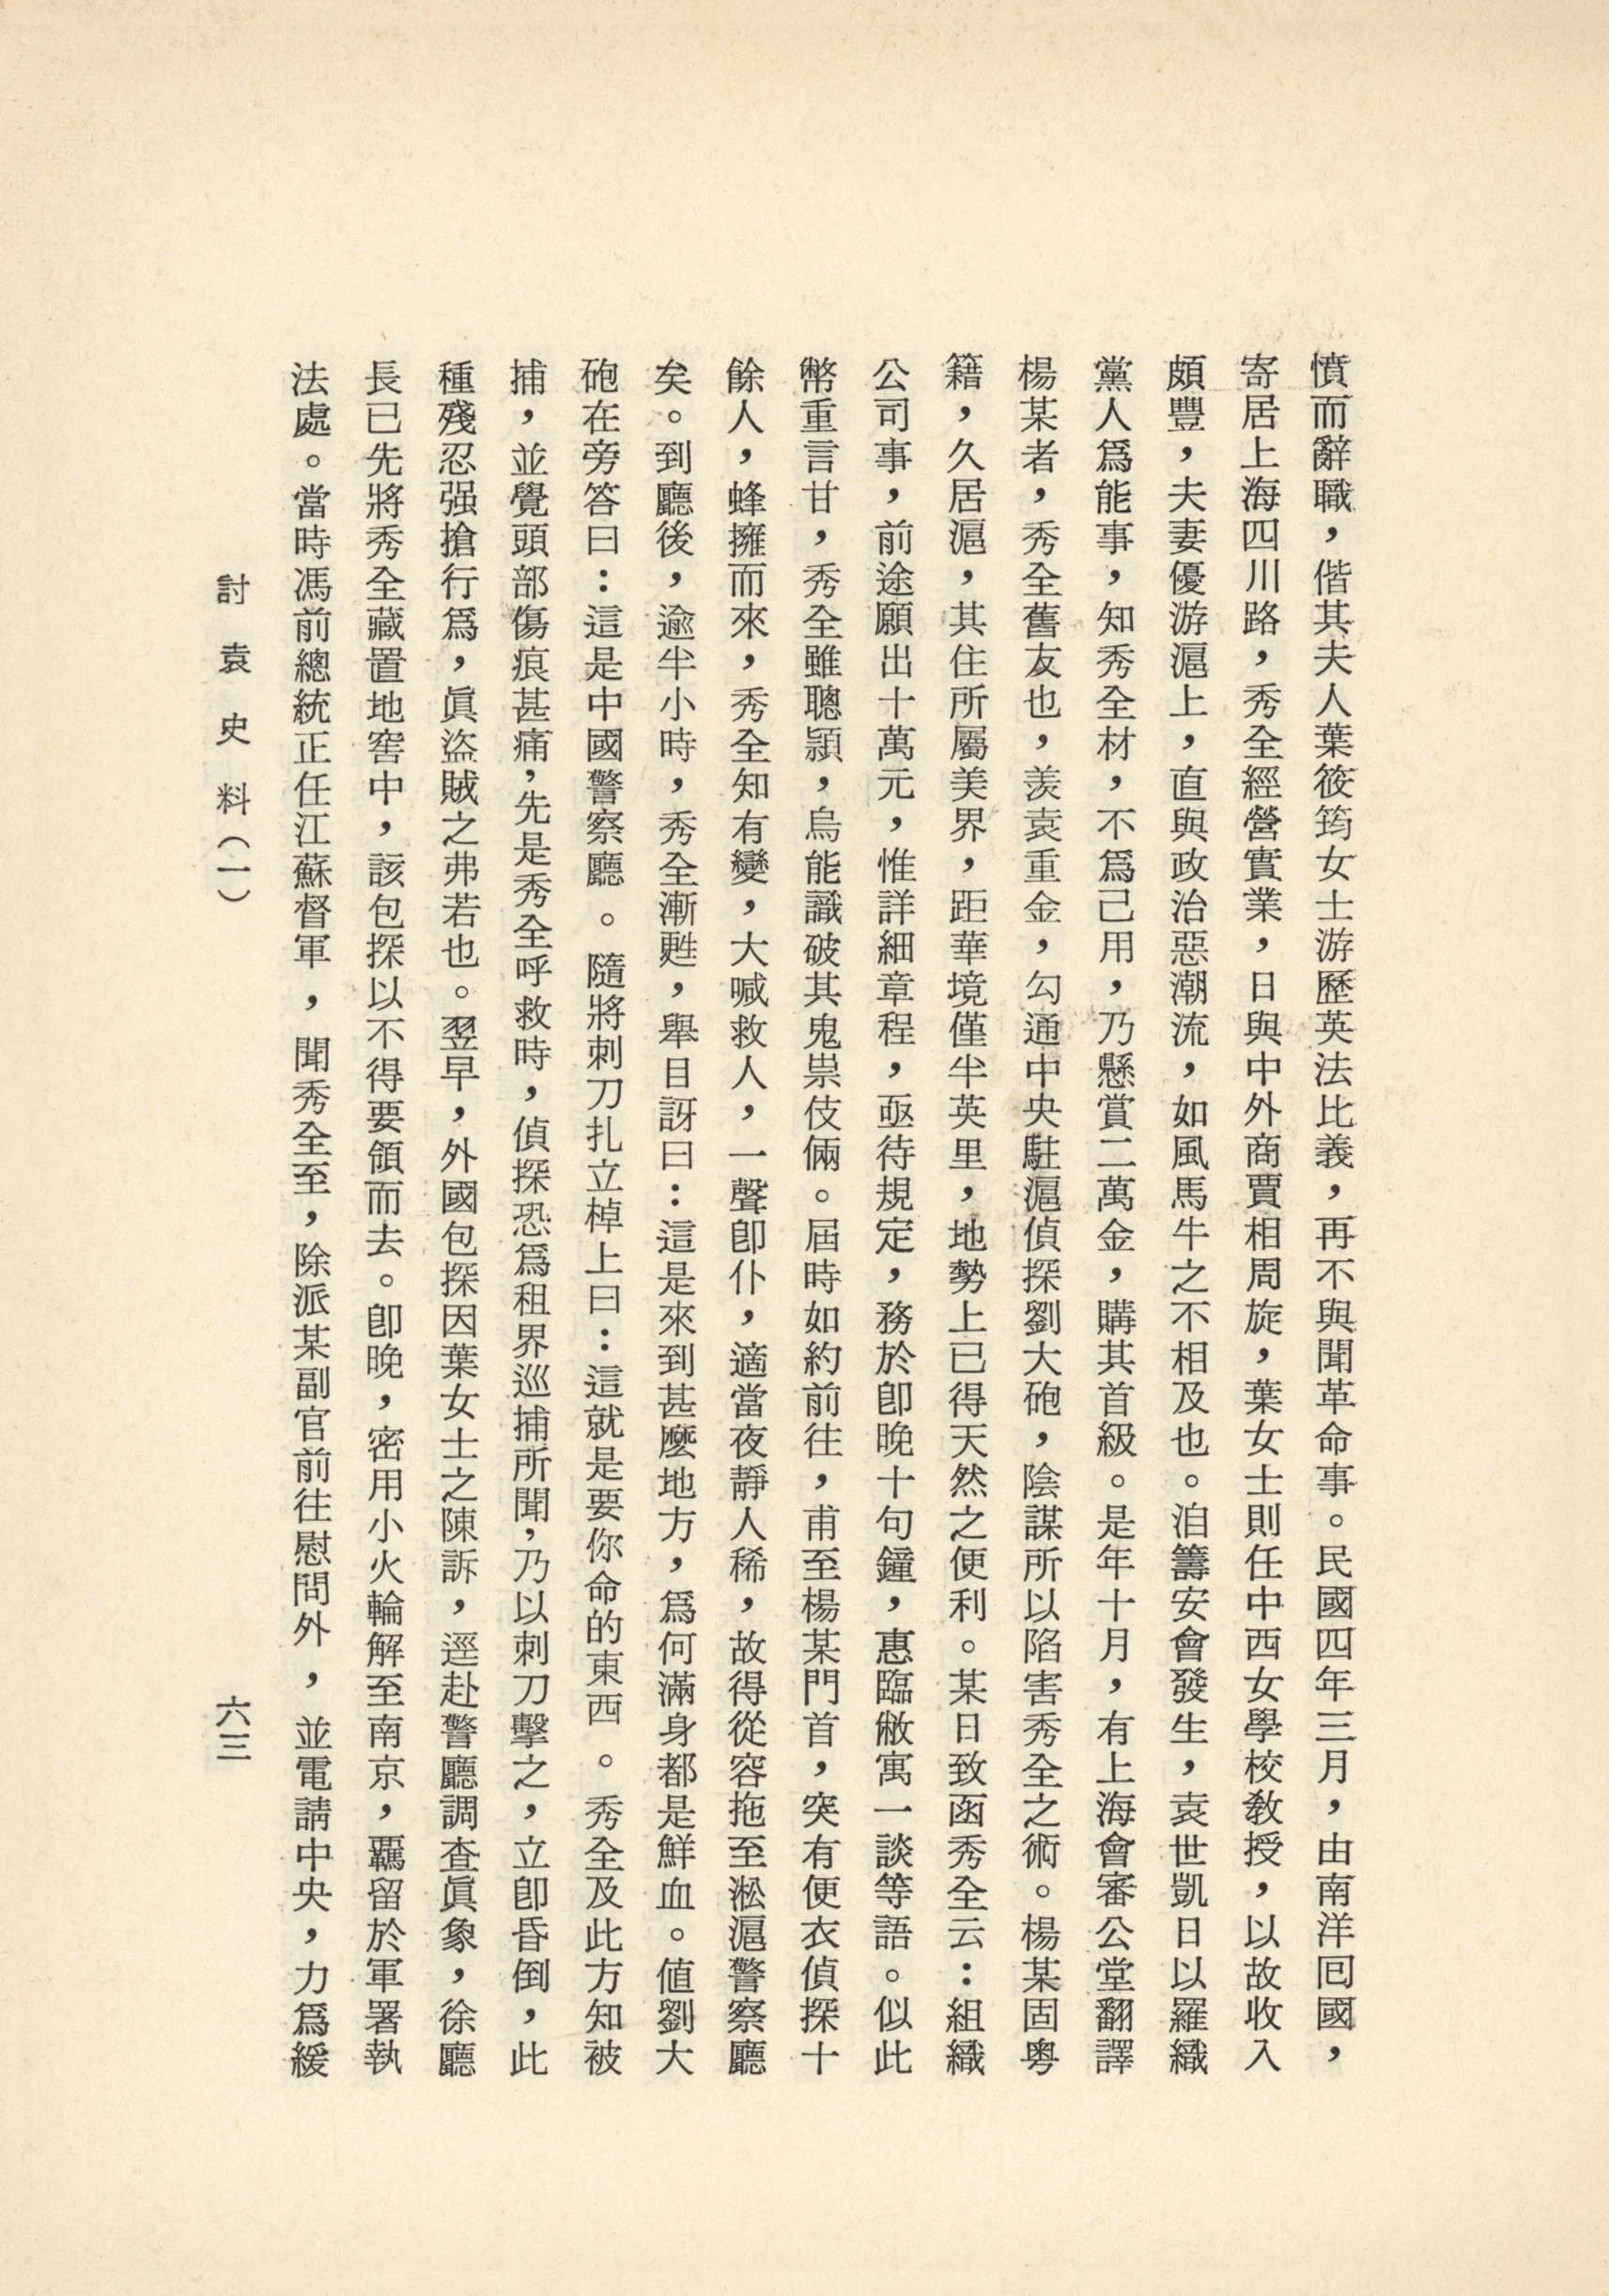 憤而辭職，偕其夫人葉筱筠女士游歷英法比義，再不與聞革命事。民國四年三月，由南洋囘國，
寄居上海四川路，秀全經營實業，日與中外商賈相周旋，葉女士則任中西女學校敎授，以故收入
頗豐，夫妻優游滬上，直與政治惡潮流，如風馬牛之不相及也。洎籌安會發生，袁世凱日以羅織
黨人爲能事，知秀全材，不爲己用，乃懸賞二萬金，購其首級。是年十月，有上海會審公堂翻譯
楊某者，秀全舊友也，羨袁重金，勾通中央駐滬偵探劉大砲，陰謀所以陷害秀全之術。楊某固粵
籍，久居滬，其住所屬美界，距華境僅半英里，地勢上已得天然之便利。某日致函秀全云：組織
公司事，前途願出十萬元，惟詳細章程，亟待規定，務於卽晚十句鐘，惠臨敝寓一談等語。似此
幣重言甘，秀全雖聰頴，烏能識破其鬼祟伎倆。屆時如約前往，甫至楊某門首，突有便衣偵探十
餘人，蜂擁而來，秀全知有變，大喊救人，一聲卽仆，適當夜靜人稀，故得從容拖至淞滬警察廳
矣。到廳後，逾半小時，秀全漸甦，舉目訝曰：這是來到甚麼地方，爲何滿身都是鮮血。値劉大
砲在旁答曰：這是中國警察廳。隨將刺刀扎立棹上曰：這就是要你命的東西。秀全及此方知被
捕，並覺頭部傷痕甚痛，先是秀全呼救時，偵探恐爲租界巡捕所聞，乃以刺刀擊之，立卽昏倒，此
種殘忍强搶行爲，眞盜賊之弗若也。翌早，外國包探因葉女士之陳訴，逕赴警廳調查眞象，徐廳
長已先將秀全藏置地窖中，該包探以不得要領而去。卽晚，密用小火輪解至南京，覊留於軍署執
法處。當時馮前總統正任江蘇督軍，聞秀全至，除派某副官前往慰問外，並電請中央，力爲緩
討袁史料（一）
六三